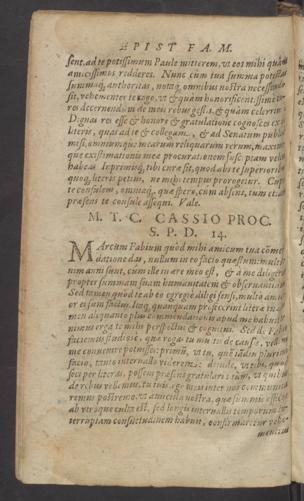 EPIST FAM.
sent, ad te potissimum Paule mitterem, vt eos mihi quàm
amicissimos redderes. Nunc cùm tua summa potestas
summaq́; authoritas, notaq́; omnibus nostra necessitudo
sit, vehementer te rogo, vt & quàm honorificentissimè
res decernendum de meis rebus gestis, & quàm celerrimè
Dignas res esse & honore & gratulatione cognosces ex
literis, quas ad te & collegam, & ad Senatum publicè
misi, omniumq́ue mearum reliquarum rerum, maximeq́ue
que existimationis meæ procurationem susceptam velim
habeas. In primisq́; tibi curæ sit, quod abs te superioribus
quoq́; literis petiui, ne mihi tempus prorogetur. Cupio
te consulem, omniaq́; quæ spero, cum absens, tum etiam
præsens te consule assequi. Vale.
M. T. C. CASSIO PROC.
S. P. D. 14.
MArcum Fabium quòd mihi amicum tua cõmen
datione das, nullum in eo facio quæstum: multi
nim anni sunt, cum ille in ære meo est, & à me diligitur
propter summam suam humanitatem & obseruantiam.
Sed tamen quòd te ab eo egregiè diligi sensi, multo amici
or ei sum factus. Itaq́; quanquam profecerunt literæ tuæ, ta
men aliquanto plus commendationis apud me habuit
animus erga te mihi perspectus & cognitus. Sed de Fabio
faciemus studiosè, quæ rogas: tu multis de causis vellem
me conuenire potuisses: primùm, vt te, quem iandiu plurimi
facio, tanto interuallo viderem: deinde, vt tibi, quod
feci per literas, possem præsens gratulari: tum, vt quibus
de rebus vellemus, tu tuis, ego meis inter nos communicaremus:
remus: postremo, vt amicitia nostra, quæ summis officiis
ab vtroque culta est, sed longis interuallis temporum in-
terruptam consuetudinem habuit, confirmaretur vehe-
mentius